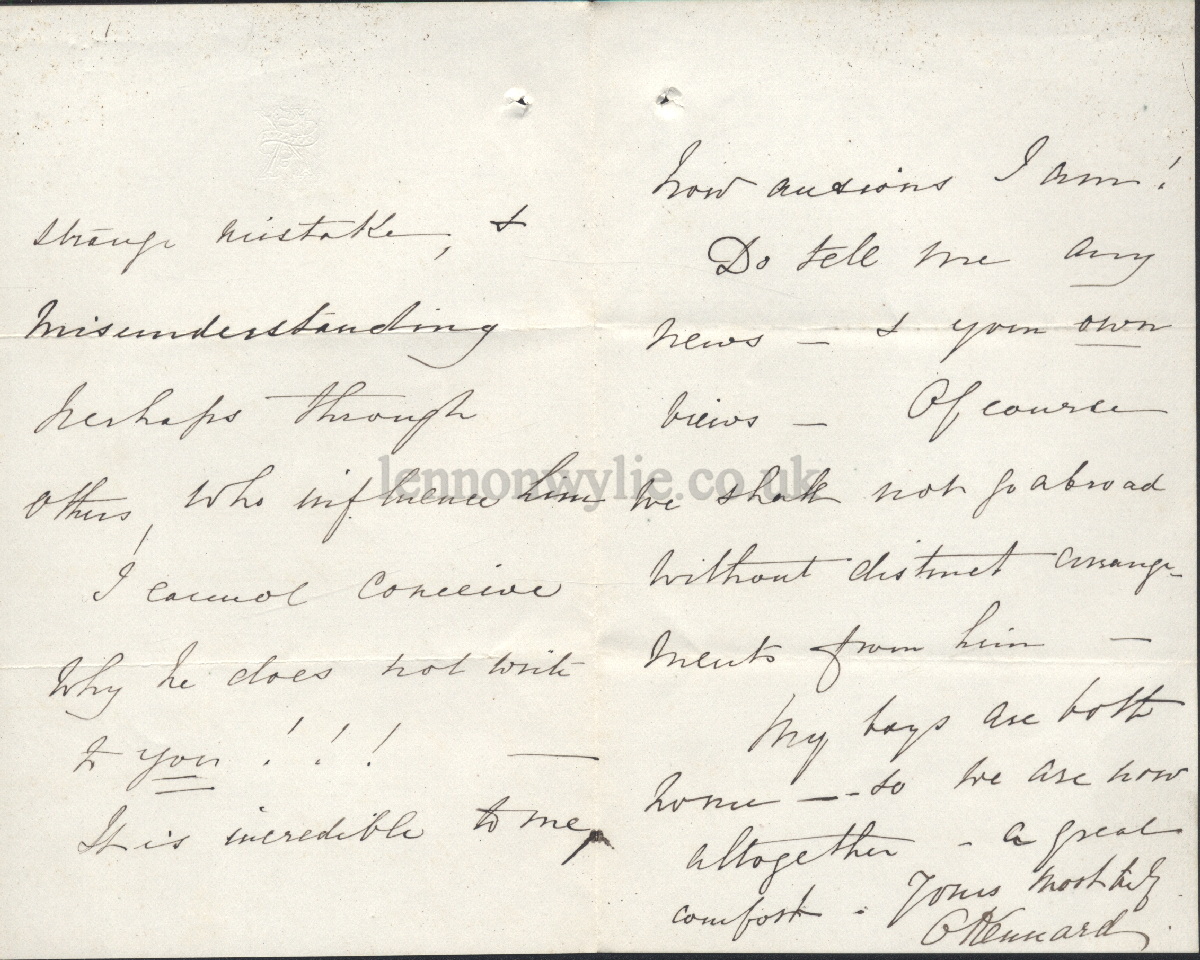 strange mistake, &
misunderstanding
perhaps through
others, who influence him
I cannot conceive
why he does not write
to you!!! —
It is incredible to me,
how anxious I am!
Do tell me any
news — & your own
views — Of course
we shall not go abroad
without distinct arrange-
ments from him —
My boys are both
home — so we are now
altogether - a great
comfort. Yours most truly
Kennard
lennonwylie.co.uk